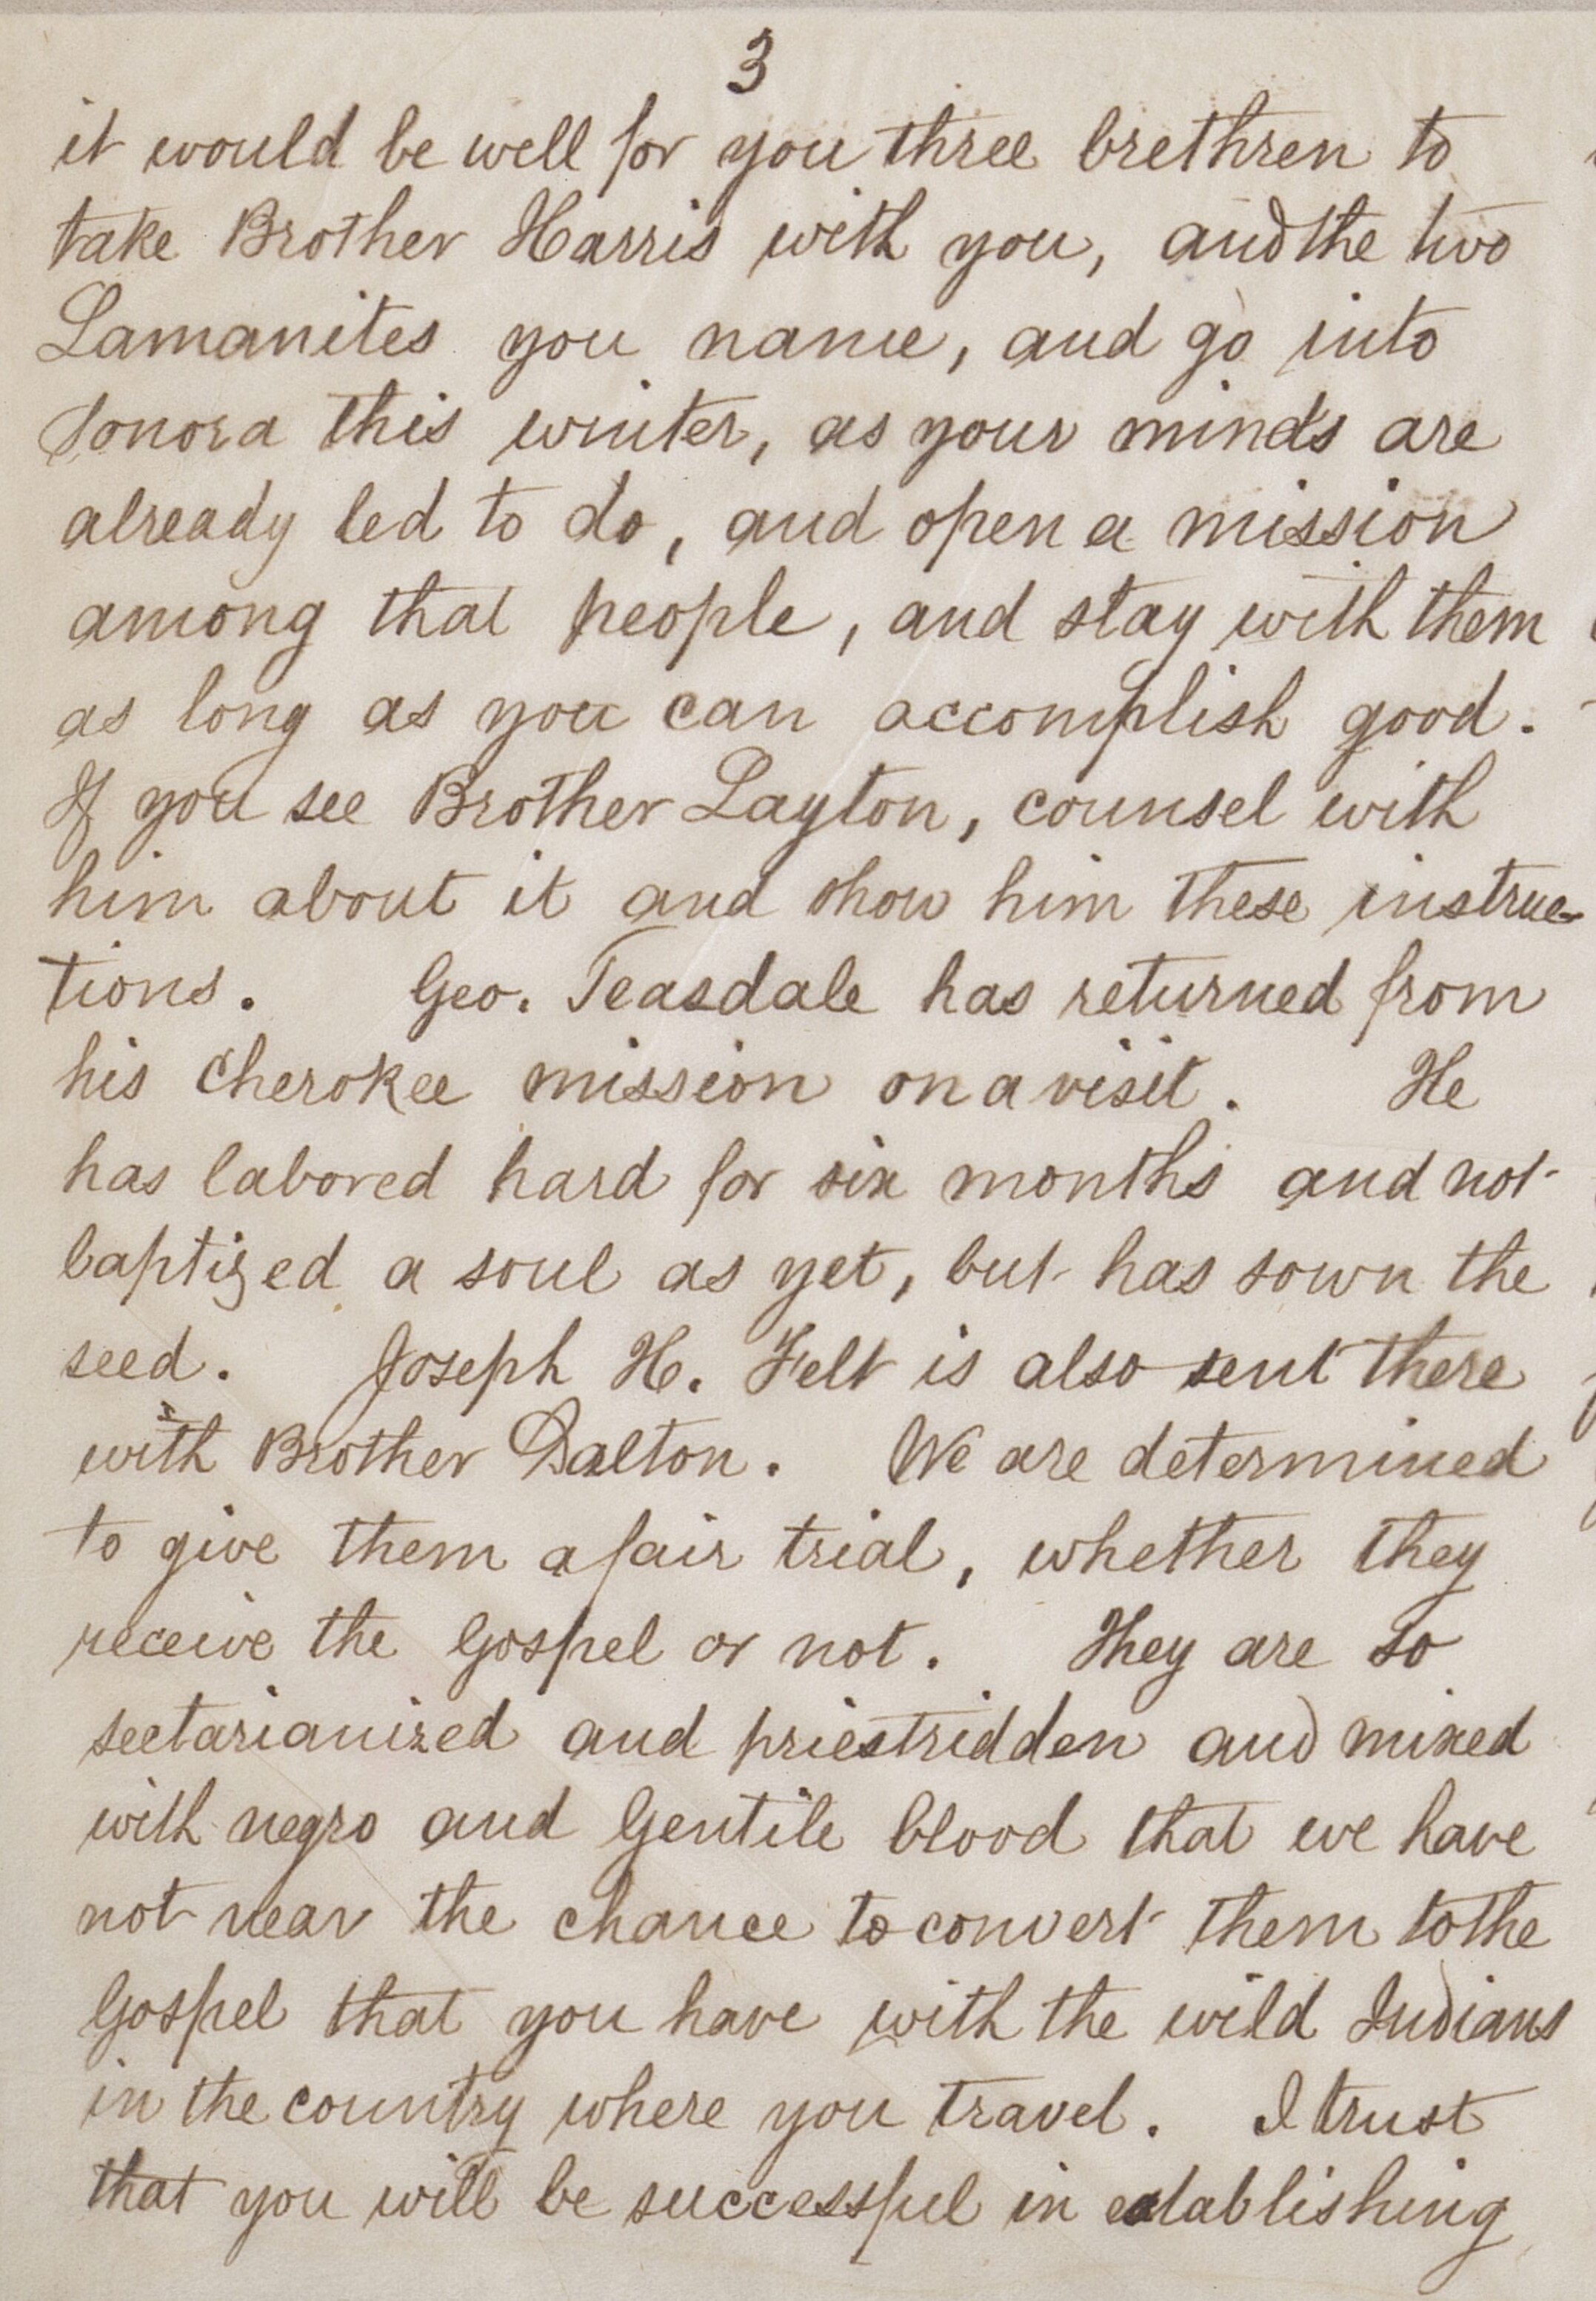 3
it would be well for you three brethren to
take Brother Harris with you, and the two
Lamanites you name, and go into
Sonora this winter, as your minds are
already led to do, and open a mission
among that people, and stay with them
as long as you can accomplish good.
If you see Brother Layton, counsel with
him about it and show him these instruc-
tions. Geo. Teasdale has returned from
his Cherokee mission on a visit. He
has labored hard for six months and not
baptized a soul as yet, but has sown the
seed. Joseph H. Felt is also sent there
with Brother Dalton. We are determined
to give them a fair trial, whether they
receive the Gospel or not. They are so
sectarianized and priestridden and mixed
with negro and Gentile blood that we have
not near the chance to convert them to the
Gospel that you have with the wild Indians
in the country where you travel. I trust
that you will be successful in establishing